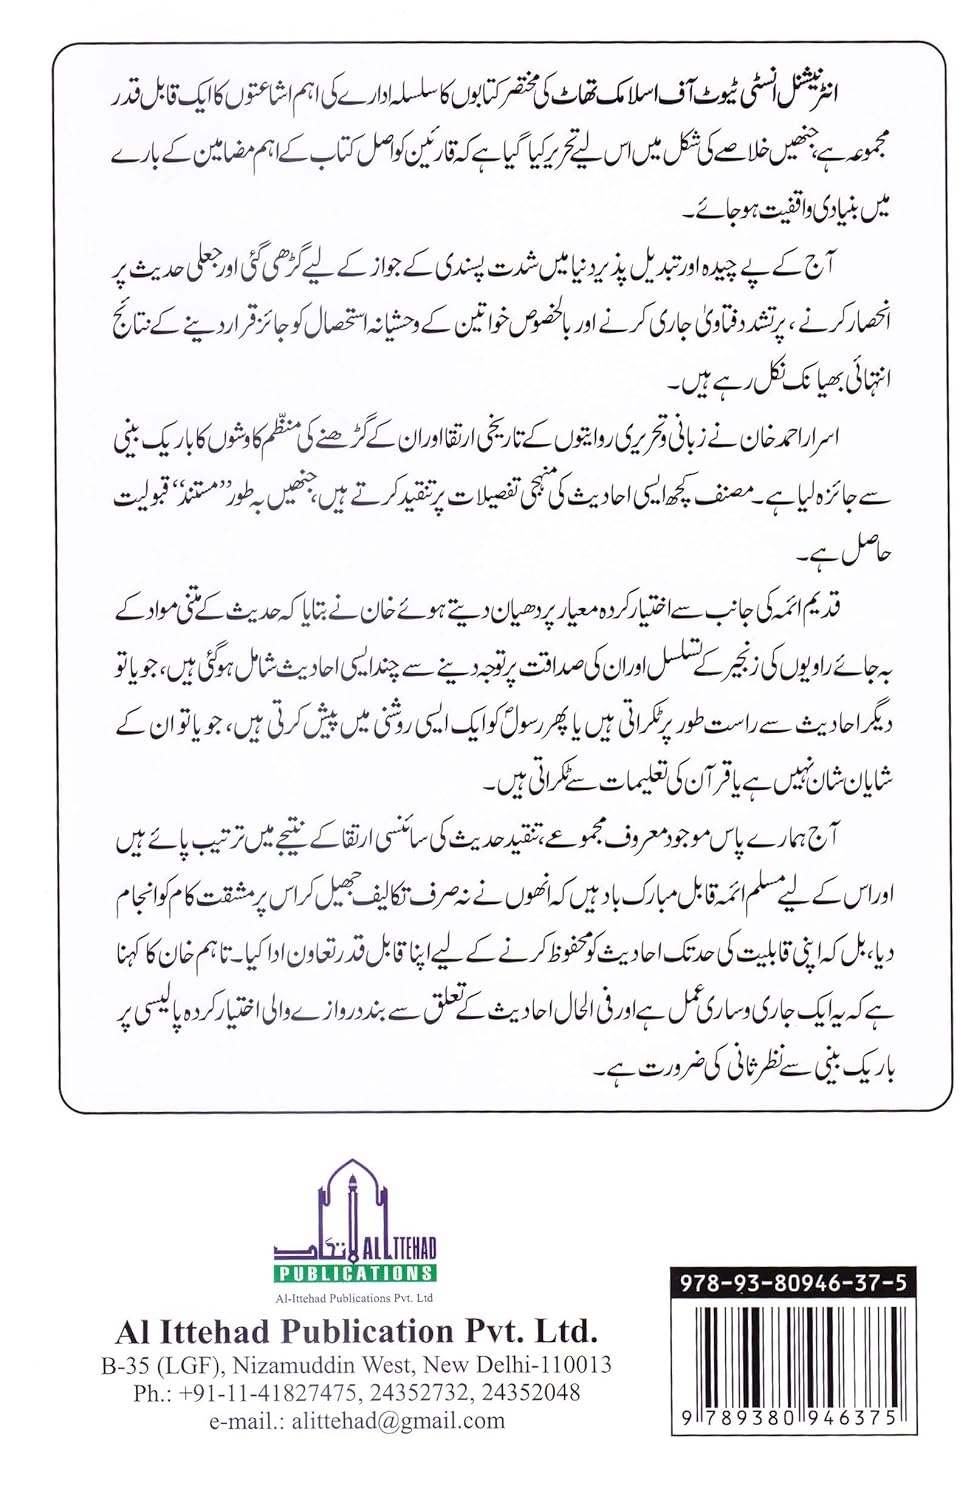 انٹرنیشنل انسٹی ٹیوٹ آف اسلامک تھاٹ کی مختصر کتابوں کا سلسلہ ادارے کی اہم اشاعتوں کا ایک قابل قدر
مجموعہ ہے، جنھیں خلاصے کی شکل میں اس لیے تحریر کیا گیا ہے کہ قارئین کو اصل کتاب کے اہم مضامین کے بارے
میں بنیادی واقفیت ہو جائے۔
آج کے پے چیدہ اور تبدیل پذیر دنیا میں شدت پسندی کے جواز کے لیے گڑھی گئی اور جعلی حدیث پر
انحصار کرنے، پرتشدد فتاویٰ جاری کرنے اور بالخصوص خواتین کے وحشیانہ استحصال کو جائز قرار دینے کے نتائج
انتہائی بھیانک نکل رہے ہیں۔
اسرار احمد خان نے زبانی و تحریری روایتوں کے تاریخی ارتقا اور ان کے گڑھنے کی منظّم کاوشوں کا باریک بینی
سے جائزہ لیا ہے۔ مصنف کچھ ایسی احادیث کی منہجی تفصیلات پر تنقید کرتے ہیں، جنھیں بہ طور ”مستند“ قبولیت
حاصل ہے۔
قدیم ائمہ کی جانب سے اختیار کردہ معیار پر دھیان دیتے ہوئے خان نے بتایا کہ حدیث کے متنی مواد کے
بہ جائے راویوں کی زنجیر کے تسلسل اور ان کی صداقت پر توجہ دینے سے چند ایسی احادیث شامل ہو گئی ہیں، جو یا تو
دیگر احادیث سے راست طور پر ٹکراتی ہیں یا پھر رسولؐ کو ایک ایسی روشنی میں پیش کرتی ہیں، جو یا تو ان کے
شایان شان نہیں ہے یا قرآن کی تعلیمات سے ٹکراتی ہیں۔
آج ہمارے پاس موجود معروف مجموعے، تنقید حدیث کی سائنسی ارتقا کے نتیجے میں ترتیب پائے ہیں
اور اس کے لیے مسلم ائمہ قابل مبارک باد ہیں کہ انھوں نے نہ صرف تکالیف جھیل کر اس پر مشقت کام کو انجام
دیا، بل کہ اپنی قابلیت کی حد تک احادیث کو محفوظ کرنے کے لیے اپنا قابل قدر تعاون ادا کیا۔ تاہم خان کا کہنا
ہے کہ یہ ایک جاری و ساری عمل ہے اور فی الحال احادیث کے تعلق سے بند دروازے والی اختیار کردہ پالیسی پر
باریک بینی سے نظر ثانی کی ضرورت ہے۔
الاتحاد AL ITTEHAD
PUBLICATIONS
Al-Ittehad Publications Pvt. Ltd
Al Ittehad Publication Pvt. Ltd.
B-35 (LGF), Nizamuddin West, New Delhi-110013
Ph.: +91-11-41827475, 24352732, 24352048
e-mail.: alittehad@gmail.com
978-93-80946-37-5
9 789380 946375